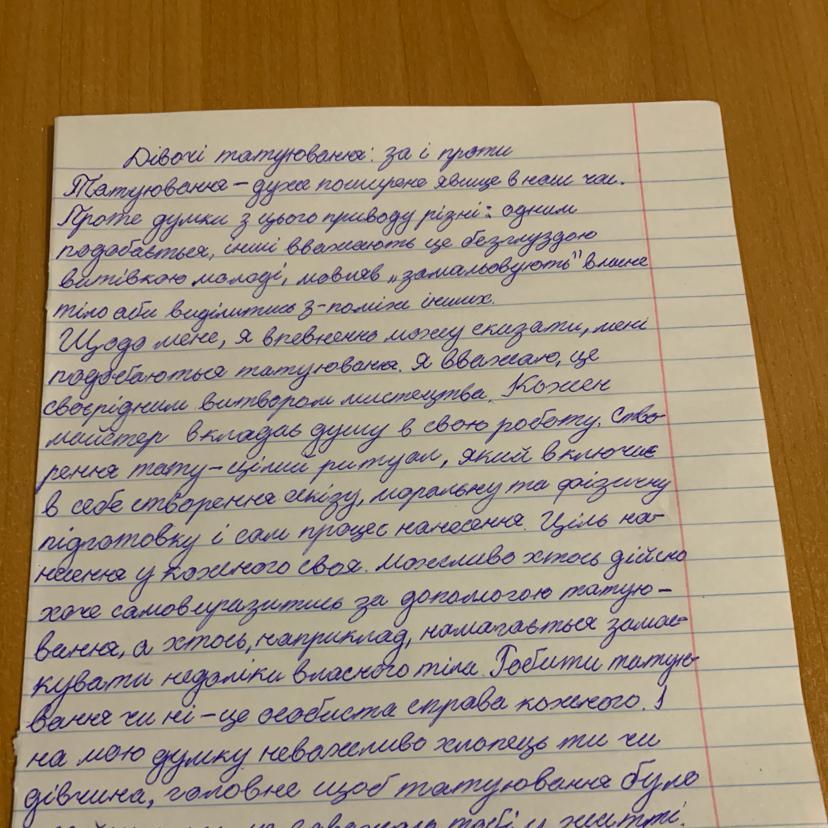 Дівочі татуювання: за і проти
Татуювання – дуже поширене явище в наш час.
Проте думки з цього приводу різні: одним
подобається, інші вважають це безглуздою
витівкою молоді, мовляв „замальовують" власне
тіло аби виділитись з-поміж інших.
Щодо мене, я впевнено можу сказати, мені
подобаються татуювання. Я вважаю, це
своєрідним витвором мистецтва. Кожен
майстер вкладає душу в свою роботу. Ство-
рення тату – цілий ритуал, який включає
в себе створення ескізу, моральну та фізичну
підготовку і сам процес нанесення. Ціль на-
несення у кожного своя. Можливо хтось дійсно
хоче самовиразитись за допомогою татую-
вання, а хтось, наприклад, намагається замас-
кувати недоліки власного тіла. Робити татую-
вання чи ні – це особиста справа кожного. І
на мою думку неважливо хлопець ти чи
дівчина, головне щоб татуювання було
заважало тобі у житті.